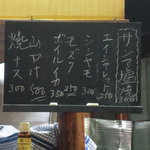 サンマ塩焼 300
エイヒレ 250
シシャモ 300
モズク 250
ボイルイカ 350
山かけ 500
焼ナス 300